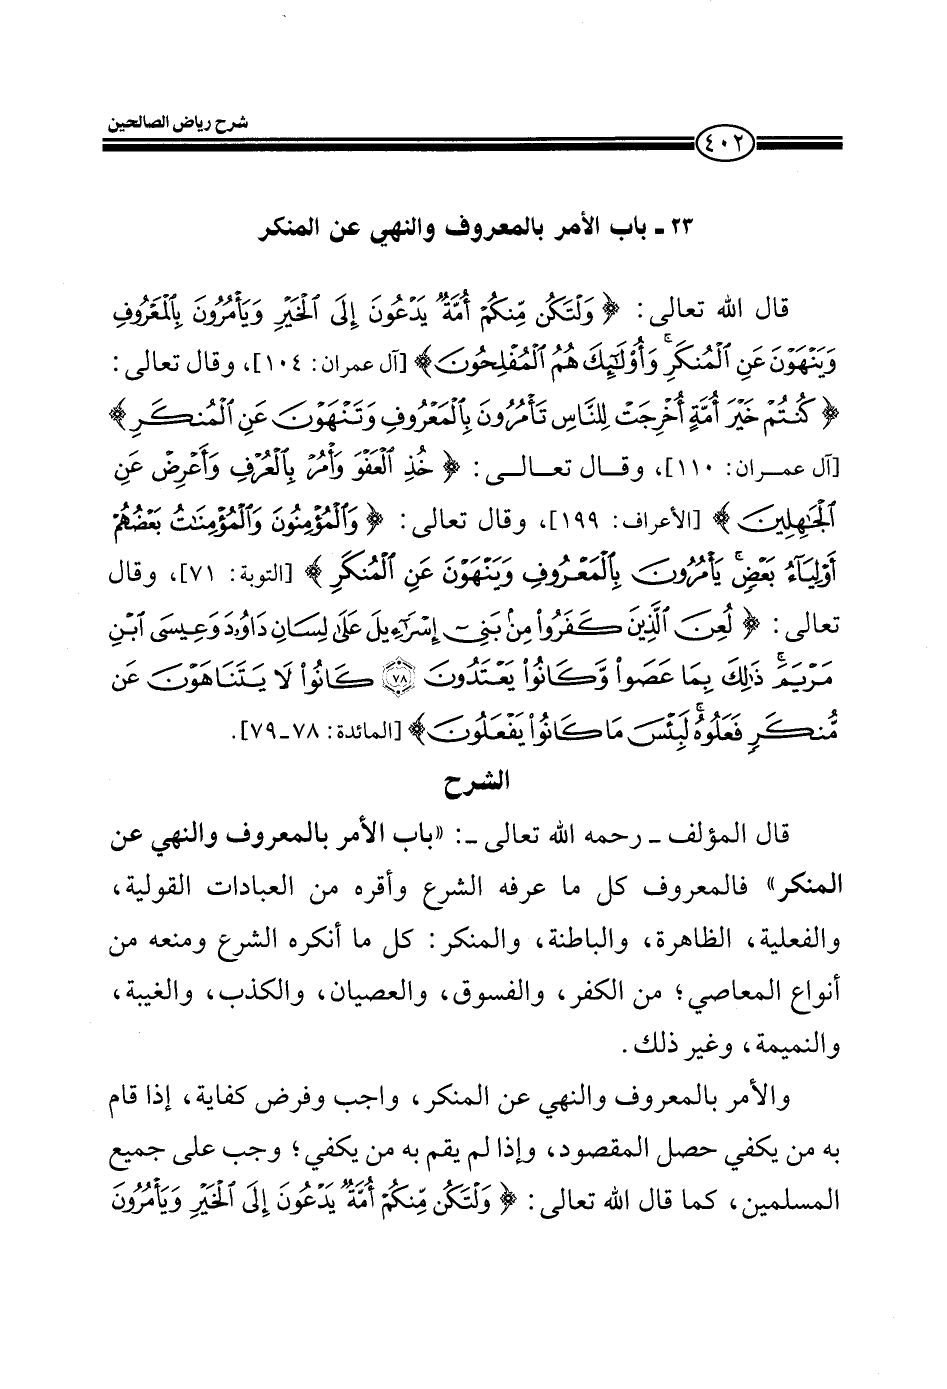 شرح رياض الصالحين
٤٠٢
٢٣ ـ باب الأمر بالمعروف والنهي عن المنكر
قال الله تعالى: ﴿ وَلْتَكُن مِّنكُمْ أُمَّةٌ يَدْعُونَ إِلَى الْخَيْرِ وَيَأْمُرُونَ بِالْمَعْرُوفِ
وَيَنْهَوْنَ عَنِ الْمُنكَرِ ۚ وَأُولَٰئِكَ هُمُ الْمُفْلِحُونَ﴾ [آل عمران: ١٠٤]، وقال تعالى:
﴿ كُنتُمْ خَيْرَ أُمَّةٍ أُخْرِجَتْ لِلنَّاسِ تَأْمُرُونَ بِالْمَعْرُوفِ وَتَنْهَوْنَ عَنِ الْمُنكَرِ ﴾
[آل عمران: ١١٠]، وقال تعالى: ﴿ خُذِ الْعَفْوَ وَأْمُرْ بِالْعُرْفِ وَأَعْرِضْ عَنِ
الْجَاهِلِينَ ﴾ [الأعراف: ١٩٩]، وقال تعالى: ﴿ وَالْمُؤْمِنُونَ وَالْمُؤْمِنَاتُ بَعْضُهُمْ
أَوْلِيَاءُ بَعْضٍ ۚ يَأْمُرُونَ بِالْمَعْرُوفِ وَيَنْهَوْنَ عَنِ الْمُنكَرِ ﴾ [التوبة: ٧١]، وقال
تعالى: ﴿ لُعِنَ الَّذِينَ كَفَرُوا مِنْ بَنِي إِسْرَائِيلَ عَلَىٰ لِسَانِ دَاوُودَ وَعِيسَى ابْنِ
مَرْيَمَ ۚ ذَٰلِكَ بِمَا عَصَوا وَّكَانُوا يَعْتَدُونَ ۝٧٨ كَانُوا لَا يَتَنَاهَوْنَ عَن
مُّنكَرٍ فَعَلُوهُ ۚ لَبِئْسَ مَا كَانُوا يَفْعَلُونَ﴾ [المائدة: ٧٨-٧٩].
الشرح
قال المؤلف ـ رحمه الله تعالى ـ: «باب الأمر بالمعروف والنهي عن
المنكر» فالمعروف كل ما عرفه الشرع وأقره من العبادات القولية،
والفعلية، الظاهرة، والباطنة، والمنكر: كل ما أنكره الشرع ومنعه من
أنواع المعاصي؛ من الكفر، والفسوق، والعصيان، والكذب، والغيبة،
والنميمة، وغير ذلك.
والأمر بالمعروف والنهي عن المنكر، واجب وفرض كفاية، إذا قام
به من يكفي حصل المقصود، وإذا لم يقم به من يكفي؛ وجب على جميع
المسلمين، كما قال الله تعالى: ﴿ وَلْتَكُن مِّنكُمْ أُمَّةٌ يَدْعُونَ إِلَى الْخَيْرِ وَيَأْمُرُونَ